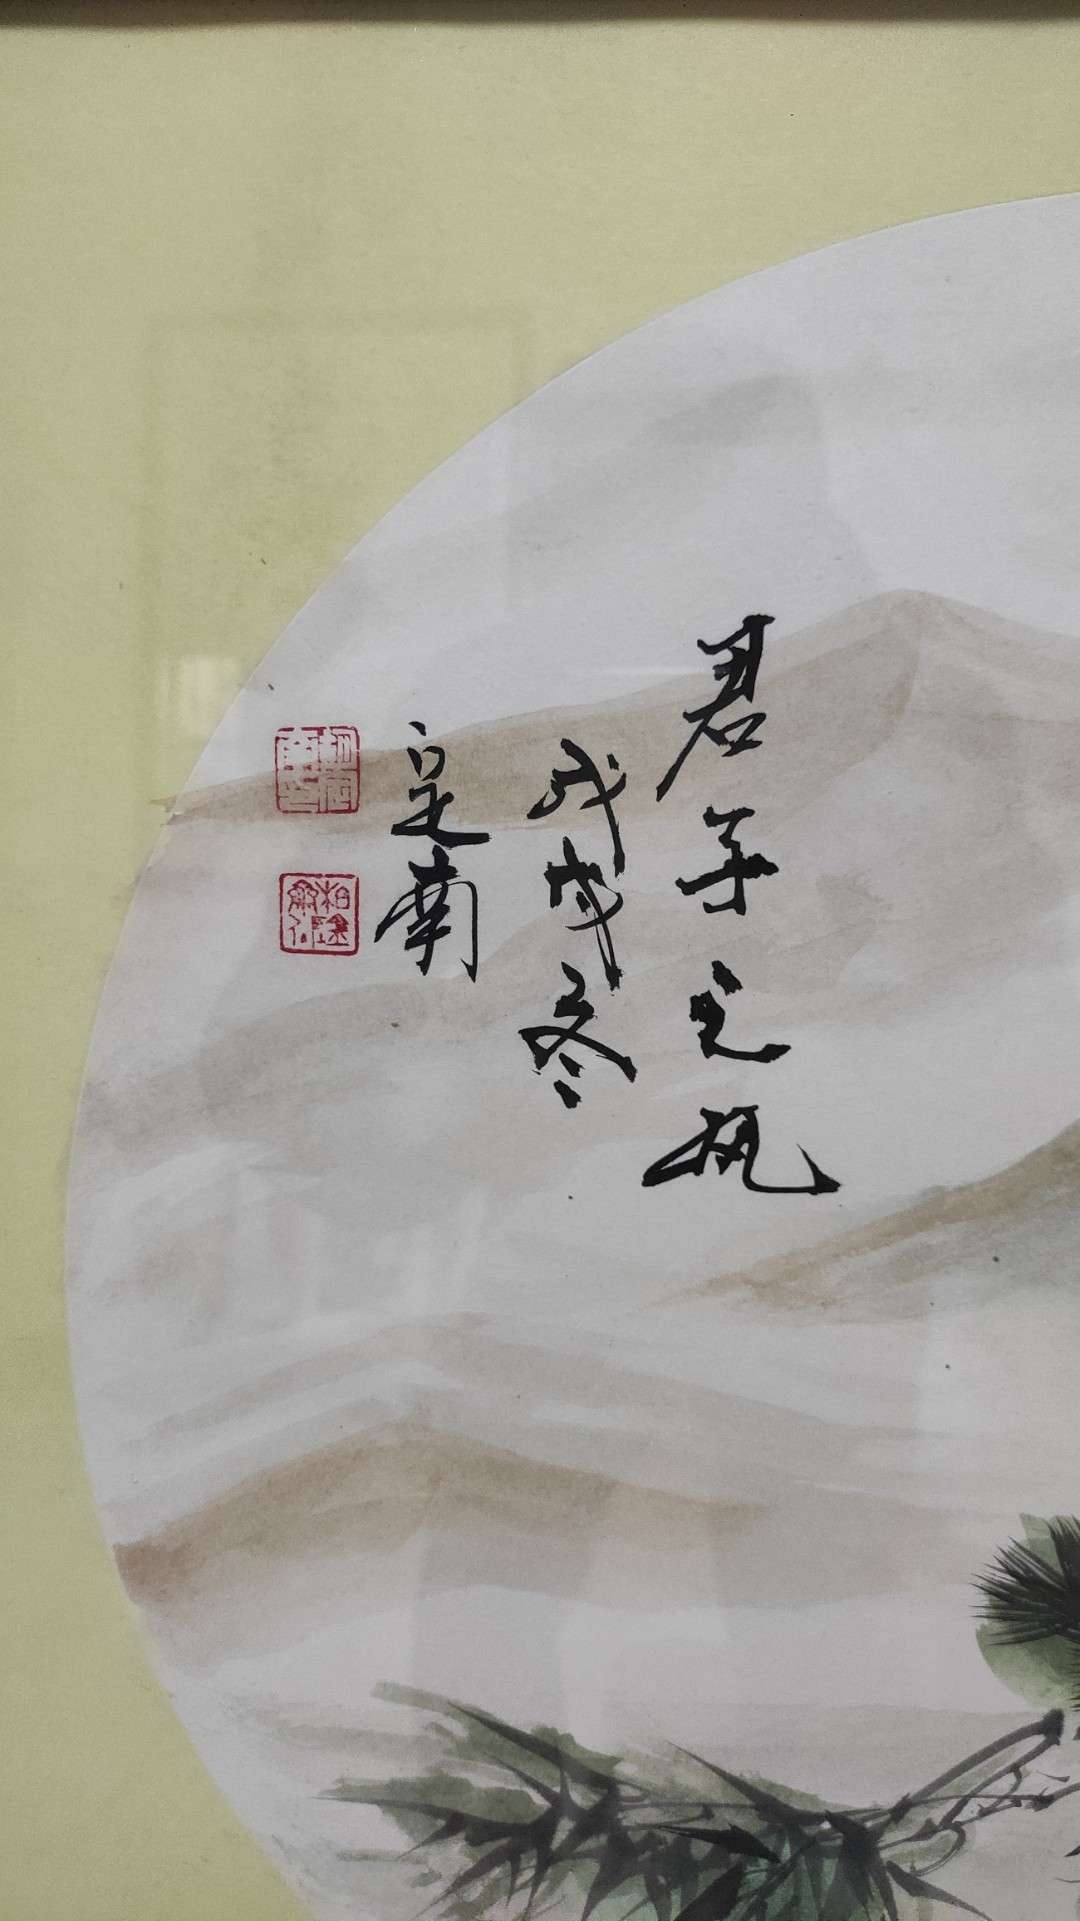 君子之风
戊戌冬
定南